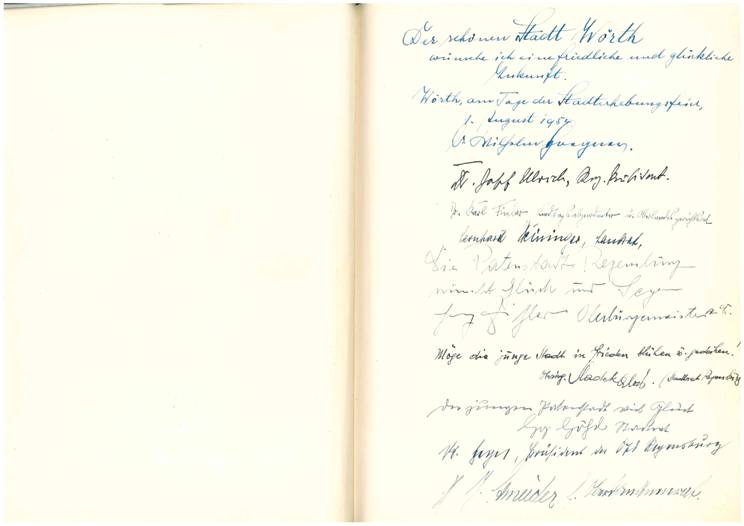 Der schönen Stadt Wörth
wünsche ich eine friedliche und glückliche
Zukunft.
Wörth, am Tage der Stadterhebungsfeier,
1. August 1954
Dr Wilhelm Hoegner.
Dr. Ulrich, Reg. Präsident.
Dr. Karl Landtagsabgeordneter
Leonhard Deininger, Landrat,
Die Patenstadt Regensburg
wünscht Glück und Segen
Oberbürgermeister
Möge die junge Stadt in Frieden blühen u. gedeihen!
(Stadtrat Regensburg)
der jungen Patenstadt viel Glück
Stadtrat
Präsident der OPD Regensburg
Schneider